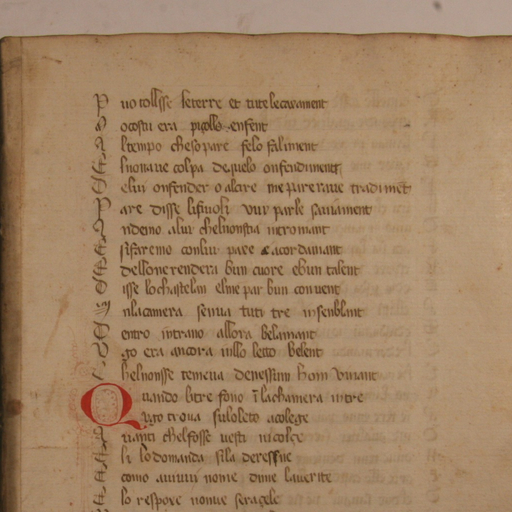 P uo tollsse le terre et tute le casament
P ocostu era picollo enfent
A l tempo che so pare felo faliment
N on aue colpa de quelo onfendiment
E lui onfender o altre me pareraue tradimet
P are disse li fiuoli vui parle sauiament
A ndemo a lui che non stia introniant
S i faremo con lui paxe & acordamant
D ellone rendera bun cuore e bun talent
D isse lo chastelan elme par bun conuent
I nla camera senua tuti tre insenblant
D entro intrano allora belamant
V go era ancora in lo letto belent
C he non sse temeua de nessun hom viuant
Quando li tre fono i la chamera intre
Vgo troua su lo leto acolege
D auanti che l fosse vesti ni colçe
E li lo domanda sila deresne
C omo aueui nome dime la uerite
E lo respoxe no me sera cele